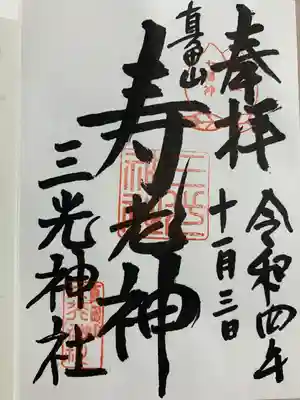 奉拝
令和四年
十一月三日
真田山
寿老神
三光神社